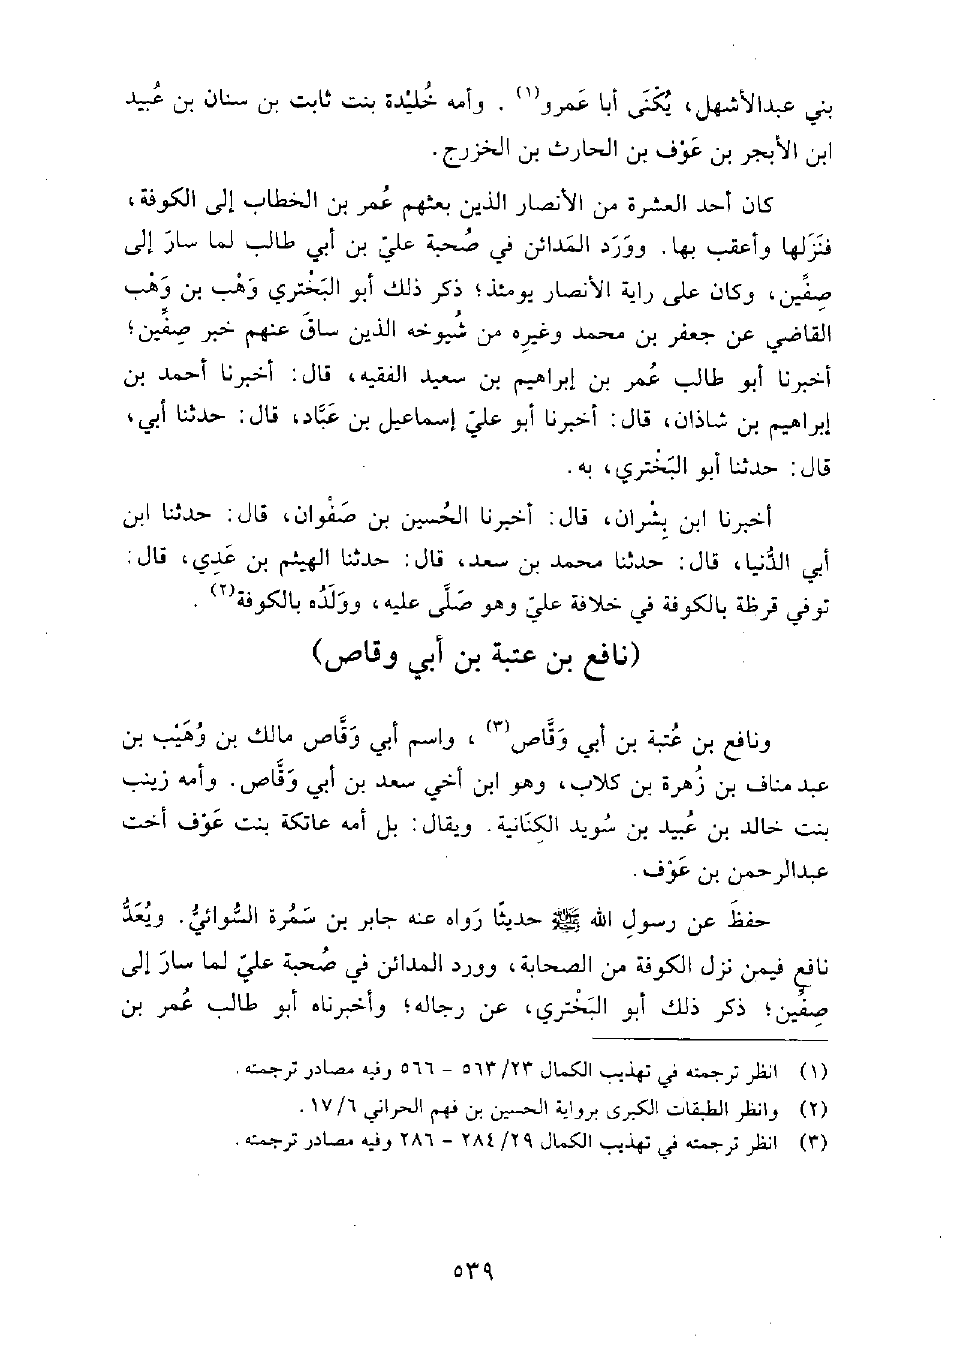 بني عبدالأشهل، يُكْنَى أبا عَمرو(١) . وأمه خُليْدة بنت ثابت بن سنان بن عُبيد
ابن الأبجر بن عَوْف بن الحارث بن الخزرج.
كان أحد العشرة من الأنصار الذين بعثهم عُمر بن الخطاب إلى الكوفة،
فنَزَلها وأعقب بها. ووَرَد المَدائن في صُحبة عليّ بن أبي طالب لما سارَ إلى
صِفِّين، وكان على راية الأنصار يومئذ؛ ذكر ذلك أبو البَخْتري وَهْب بن وَهْب
القاضي عن جعفر بن محمد وغيرِه من شُيوخه الذين ساقَ عنهم خبر صِفِّين؛
أخبرنا أبو طالب عُمر بن إبراهيم بن سعيد الفقيه، قال: أخبرنا أحمد بن
إبراهيم بن شاذان، قال: أخبرنا أبو عليّ إسماعيل بن عَبَّاد، قال: حدثنا أبي،
قال: حدثنا أبو البَخْتري، به.
أخبرنا ابن بِشْران، قال: أخبرنا الحُسين بن صَفْوان، قال: حدثنا ابن
أبي الدُّنيا، قال: حدثنا محمد بن سعد، قال: حدثنا الهيثم بن عَدِي، قال:
توفي قرظة بالكوفة في خلافة عليّ وهو صَلَّى عليه، ووَلَدُه بالكوفة(٢) .
(نافع بن عتبة بن أبي وقاص)
ونافع بن عُتبة بن أبي وَقَّاص(٣) ، واسم أبي وَقَّاص مالك بن وُهَيْب بن
عبدمناف بن زُهرة بن كلاب، وهو ابن أخي سعد بن أبي وَقَّاص. وأمه زينب
بنت خالد بن عُبيد بن سُويد الكِنَانية. ويقال: بل أمه عاتكة بنت عَوْف أخت
عبدالرحمن بن عَوْف.
حفظَ عن رسولِ الله ﷺ حديثًا رَواه عنه جابر بن سَمُرة السُّوائيُّ. ويُعَدُّ
نافع فيمن نزل الكوفة من الصحابة، وورد المدائن في صُحبة عليّ لما سارَ إلى
صِفِّين؛ ذكر ذلك أبو البَخْتري، عن رجاله؛ وأخبرناه أبو طالب عُمر بن
(١) انظر ترجمته في تهذيب الكمال ٢٣/ ٥٦٣ - ٥٦٦ وفيه مصادر ترجمته.
(٢) وانظر الطبقات الكبرى برواية الحسين بن فهم الحراني ٦/ ١٧.
(٣) انظر ترجمته في تهذيب الكمال ٢٩/ ٢٨٤ - ٢٨٦ وفيه مصادر ترجمته.
٥٣٩